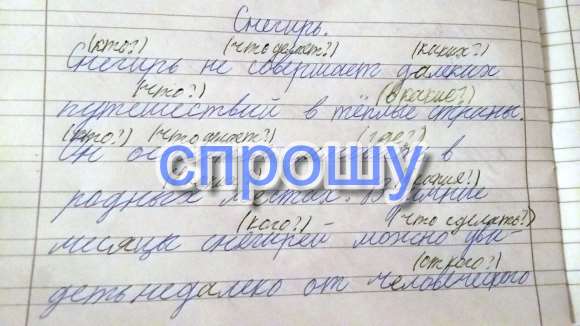 Снегирь.
(кто?) (что делает?) (каких?)
Снегирь не совершает далеких
(что?) (в какие?)
путешествий в тёплые страны.
(кто?) (что делает?) (где?)
Он в
спрошу
родных местах.
(кого?) (что сделать?)
месяцы снегирей можно уви-
(от кого?)
деть недалеко от человеческого